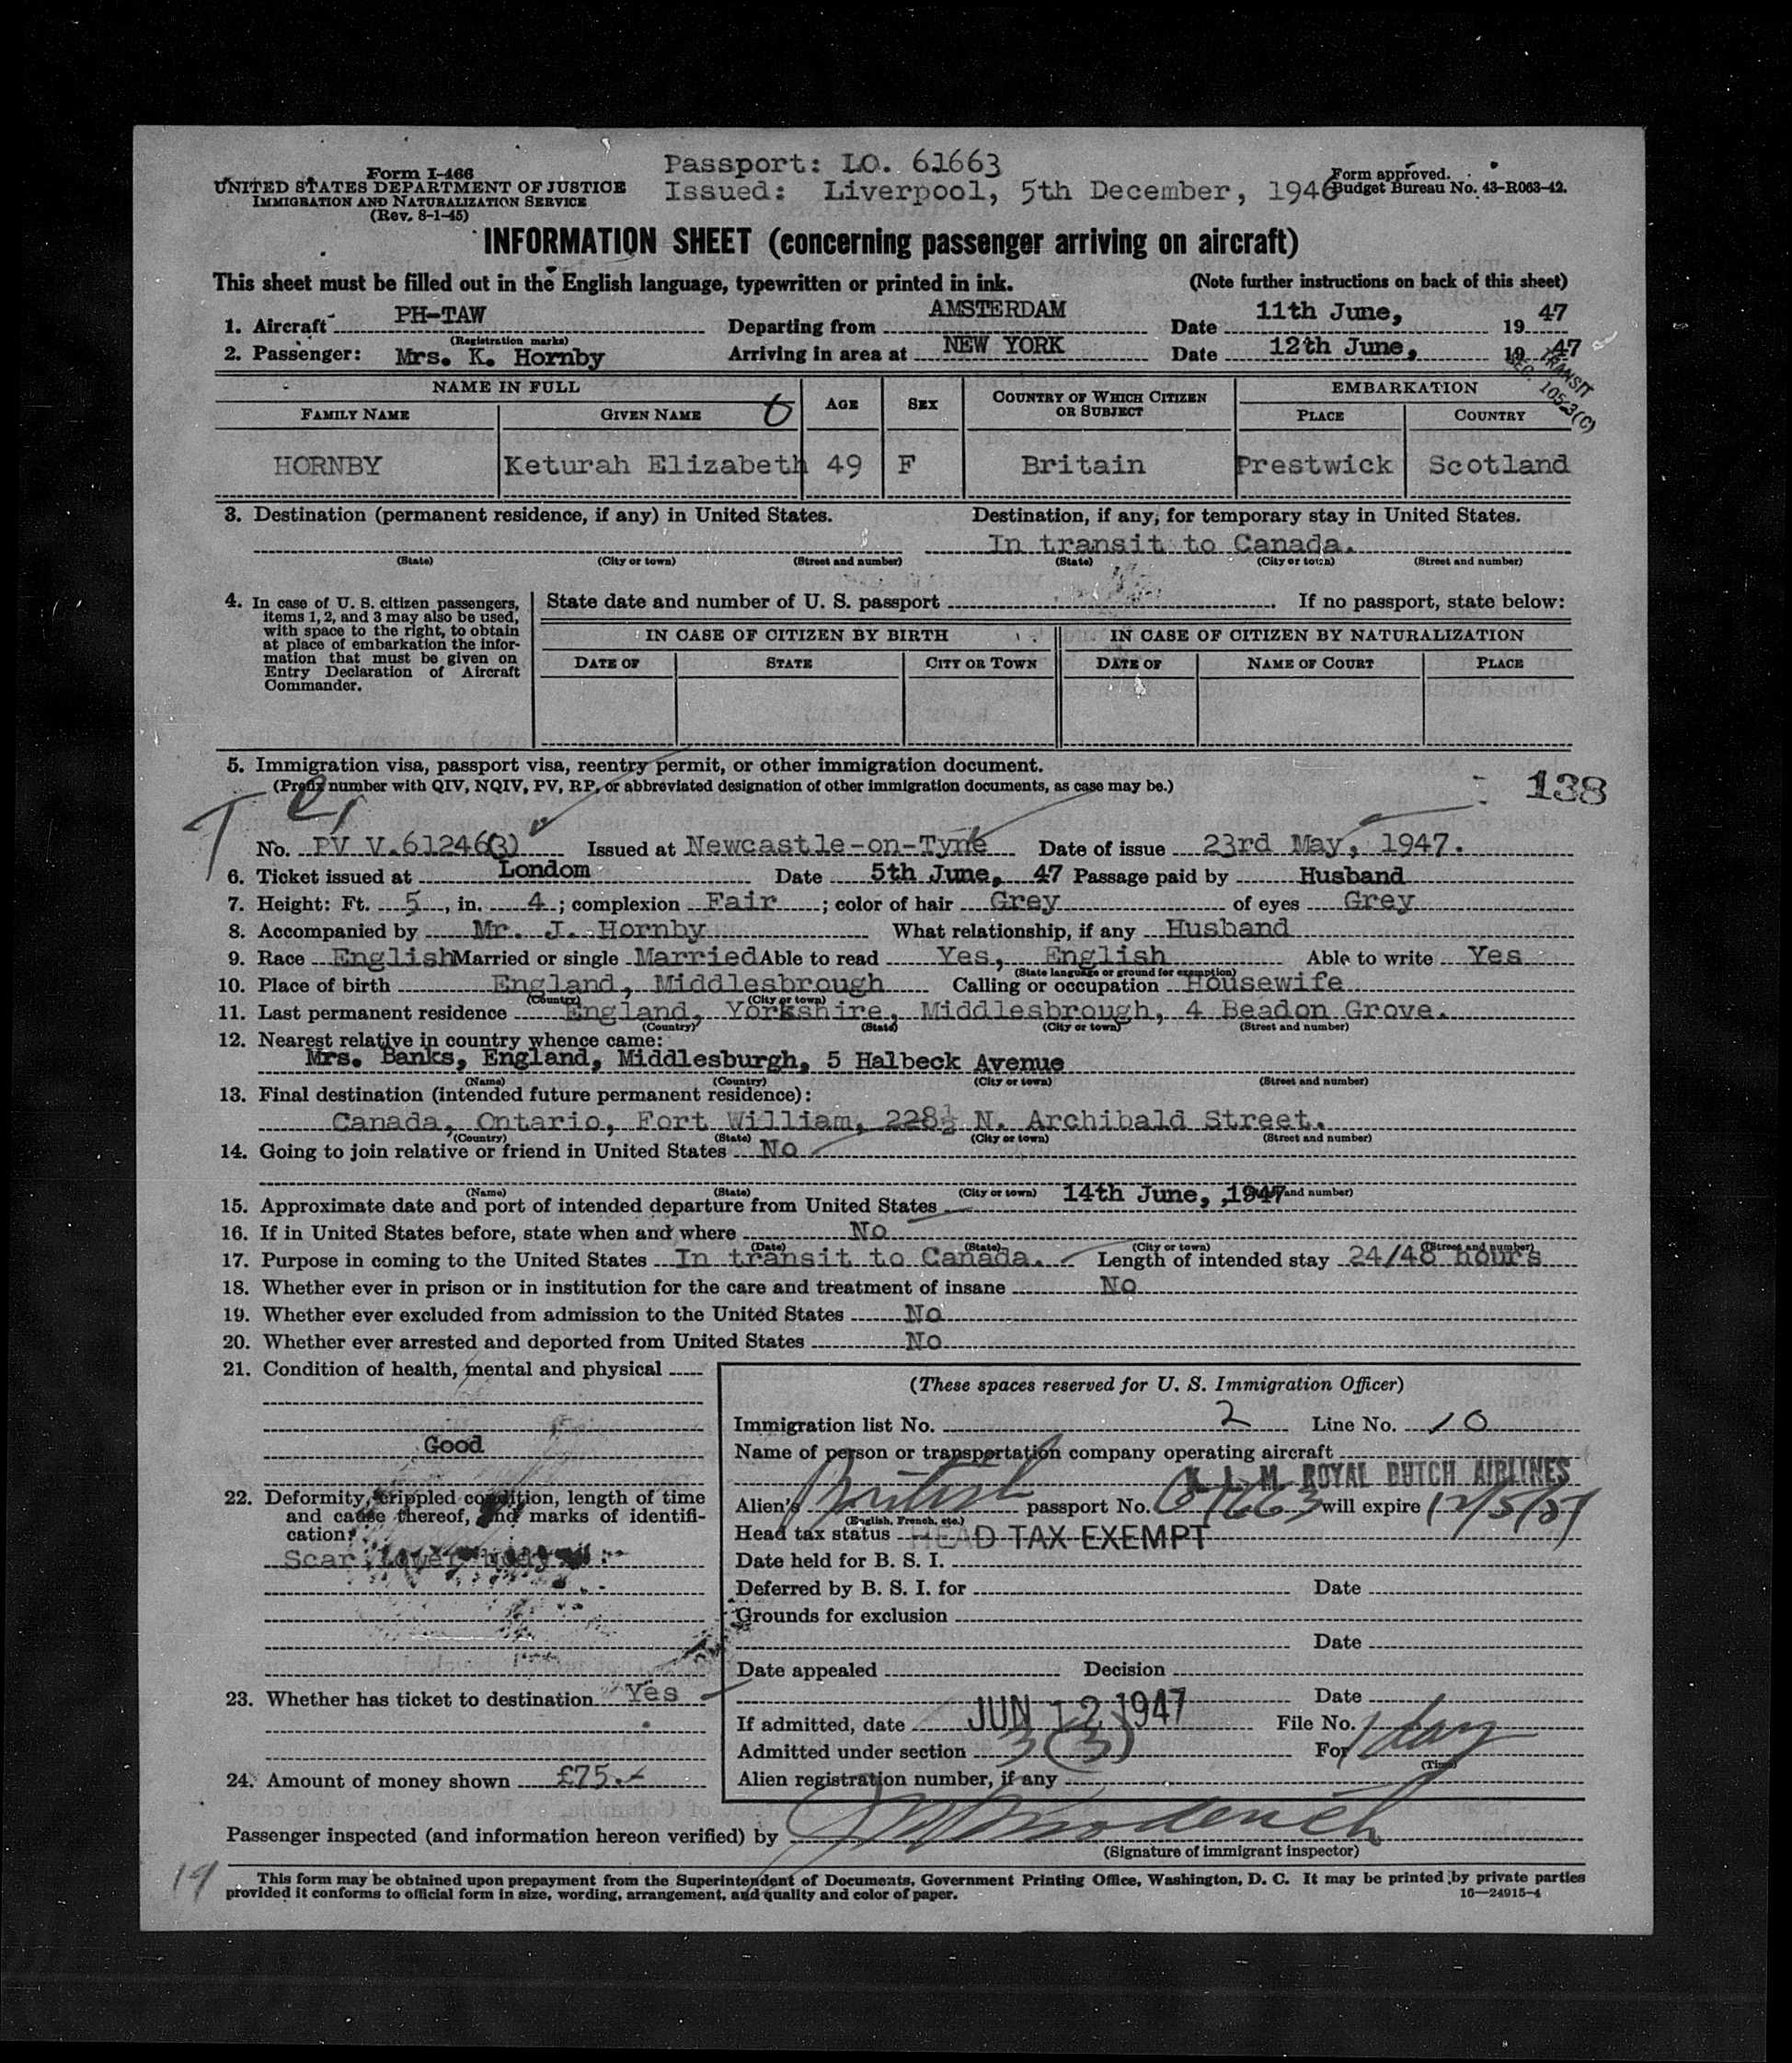 Passport: LO. 61663
Form I-466
Form approved.
UNITED STATES DEPARTMENT OF JUSTICE
Issued: Liverpool, 5th December, 1946
Budget Bureau No. 43-R063-42.
IMMIGRATION AND NATURALIZATION SERVICE
(Rev. 8-1-45)
INFORMATION SHEET (concerning passenger arriving on aircraft)
This sheet must be filled out in the English language, typewritten or printed in ink. (Note further instructions on back of this sheet)
1. Aircraft PH-TAW Departing from AMSTERDAM Date 11th June, 19 47
(Registration marks)
2. Passenger: Mrs. K. Hornby Arriving in area at NEW YORK Date 12th June, 19 47
TRANSIT
SEC. 105.3(C)
NAME IN FULL AGE SEX COUNTRY OF WHICH CITIZEN OR SUBJECT EMBARKATION
FAMILY NAME GIVEN NAME PLACE COUNTRY
HORNBY Keturah Elizabeth 49 F Britain Prestwick Scotland
3. Destination (permanent residence, if any) in United States. Destination, if any, for temporary stay in United States.
In transit to Canada.
(State) (City or town) (Street and number) (State) (City or town) (Street and number)
4. In case of U. S. citizen passengers,
items 1, 2, and 3 may also be used,
with space to the right, to obtain
at place of embarkation the infor-
mation that must be given on
Entry Declaration of Aircraft
Commander.
State date and number of U. S. passport . If no passport, state below:
IN CASE OF CITIZEN BY BIRTH IN CASE OF CITIZEN BY NATURALIZATION
DATE OF STATE CITY OR TOWN DATE OF NAME OF COURT PLACE
5. Immigration visa, passport visa, reentry permit, or other immigration document.
(Prefix number with QIV, NQIV, PV, RP, or abbreviated designation of other immigration documents, as case may be.)
138
No. PV V.61246(3) Issued at Newcastle-on-Tyne Date of issue 23rd May, 1947.
6. Ticket issued at London Date 5th June, 47 Passage paid by Husband
7. Height: Ft. 5, in. 4; complexion Fair; color of hair Grey of eyes Grey
8. Accompanied by Mr. J. Hornby What relationship, if any Husband
9. Race English Married or single Married Able to read Yes, English Able to write Yes
(State language or ground for exemption)
10. Place of birth England, Middlesbrough Calling or occupation Housewife
(Country) (City or town)
11. Last permanent residence England, Yorkshire, Middlesbrough, 4 Beadon Grove.
(Country) (State) (City or town) (Street and number)
12. Nearest relative in country whence came:
Mrs. Banks, England, Middlesburgh, 5 Halbeck Avenue
(Name) (Country) (City or town) (Street and number)
13. Final destination (intended future permanent residence):
Canada, Ontario, Fort William, 228½ N. Archibald Street.
(Country) (State) (City or town) (Street and number)
14. Going to join relative or friend in United States No
(Name) (State) (City or town) (Street and number)
15. Approximate date and port of intended departure from United States 14th June, 1947
16. If in United States before, state when and where No
(Date) (State) (City or town) (Street and number)
17. Purpose in coming to the United States In transit to Canada. Length of intended stay 24/48 hours
18. Whether ever in prison or in institution for the care and treatment of insane No
19. Whether ever excluded from admission to the United States No
20. Whether ever arrested and deported from United States No
21. Condition of health, mental and physical
Good
22. Deformity, crippled condition, length of time
and cause thereof, and marks of identifi-
cation:
Scar lower body
23. Whether has ticket to destination Yes
24. Amount of money shown £75.-
(These spaces reserved for U. S. Immigration Officer)
Immigration list No. 2 Line No. 10
Name of person or transportation company operating aircraft
K. L. M. ROYAL DUTCH AIRLINES
Alien's British passport No. 61663 will expire 12/5/51
(English, French, etc.)
Head tax status HEAD TAX EXEMPT
Date held for B. S. I.
Deferred by B. S. I. for Date
Grounds for exclusion
Date
Date appealed Decision
Date
If admitted, date JUN 12 1947 File No.
Admitted under section 3(3) For 1 day
(Time)
Alien registration number, if any
Passenger inspected (and information hereon verified) by
(Signature of immigrant inspector)
19
This form may be obtained upon prepayment from the Superintendent of Documents, Government Printing Office, Washington, D. C. It may be printed by private parties
provided it conforms to official form in size, wording, arrangement, and quality and color of paper. 16—24915-4